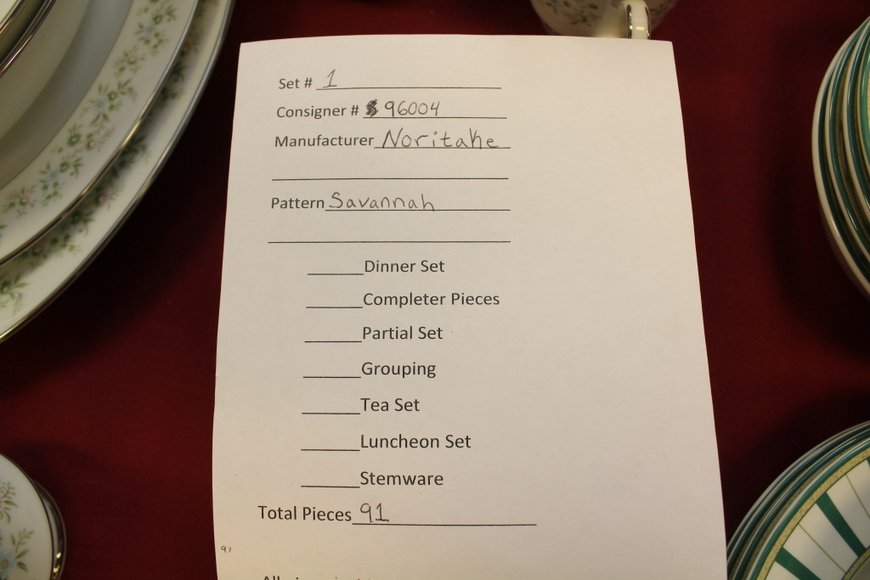 Set # 1
Consigner # 96004
Manufacturer Noritahe
Pattern Savannah
Dinner Set
Completer Pieces
Partial Set
Grouping
Tea Set
Luncheon Set
Stemware
Total Pieces 91
91